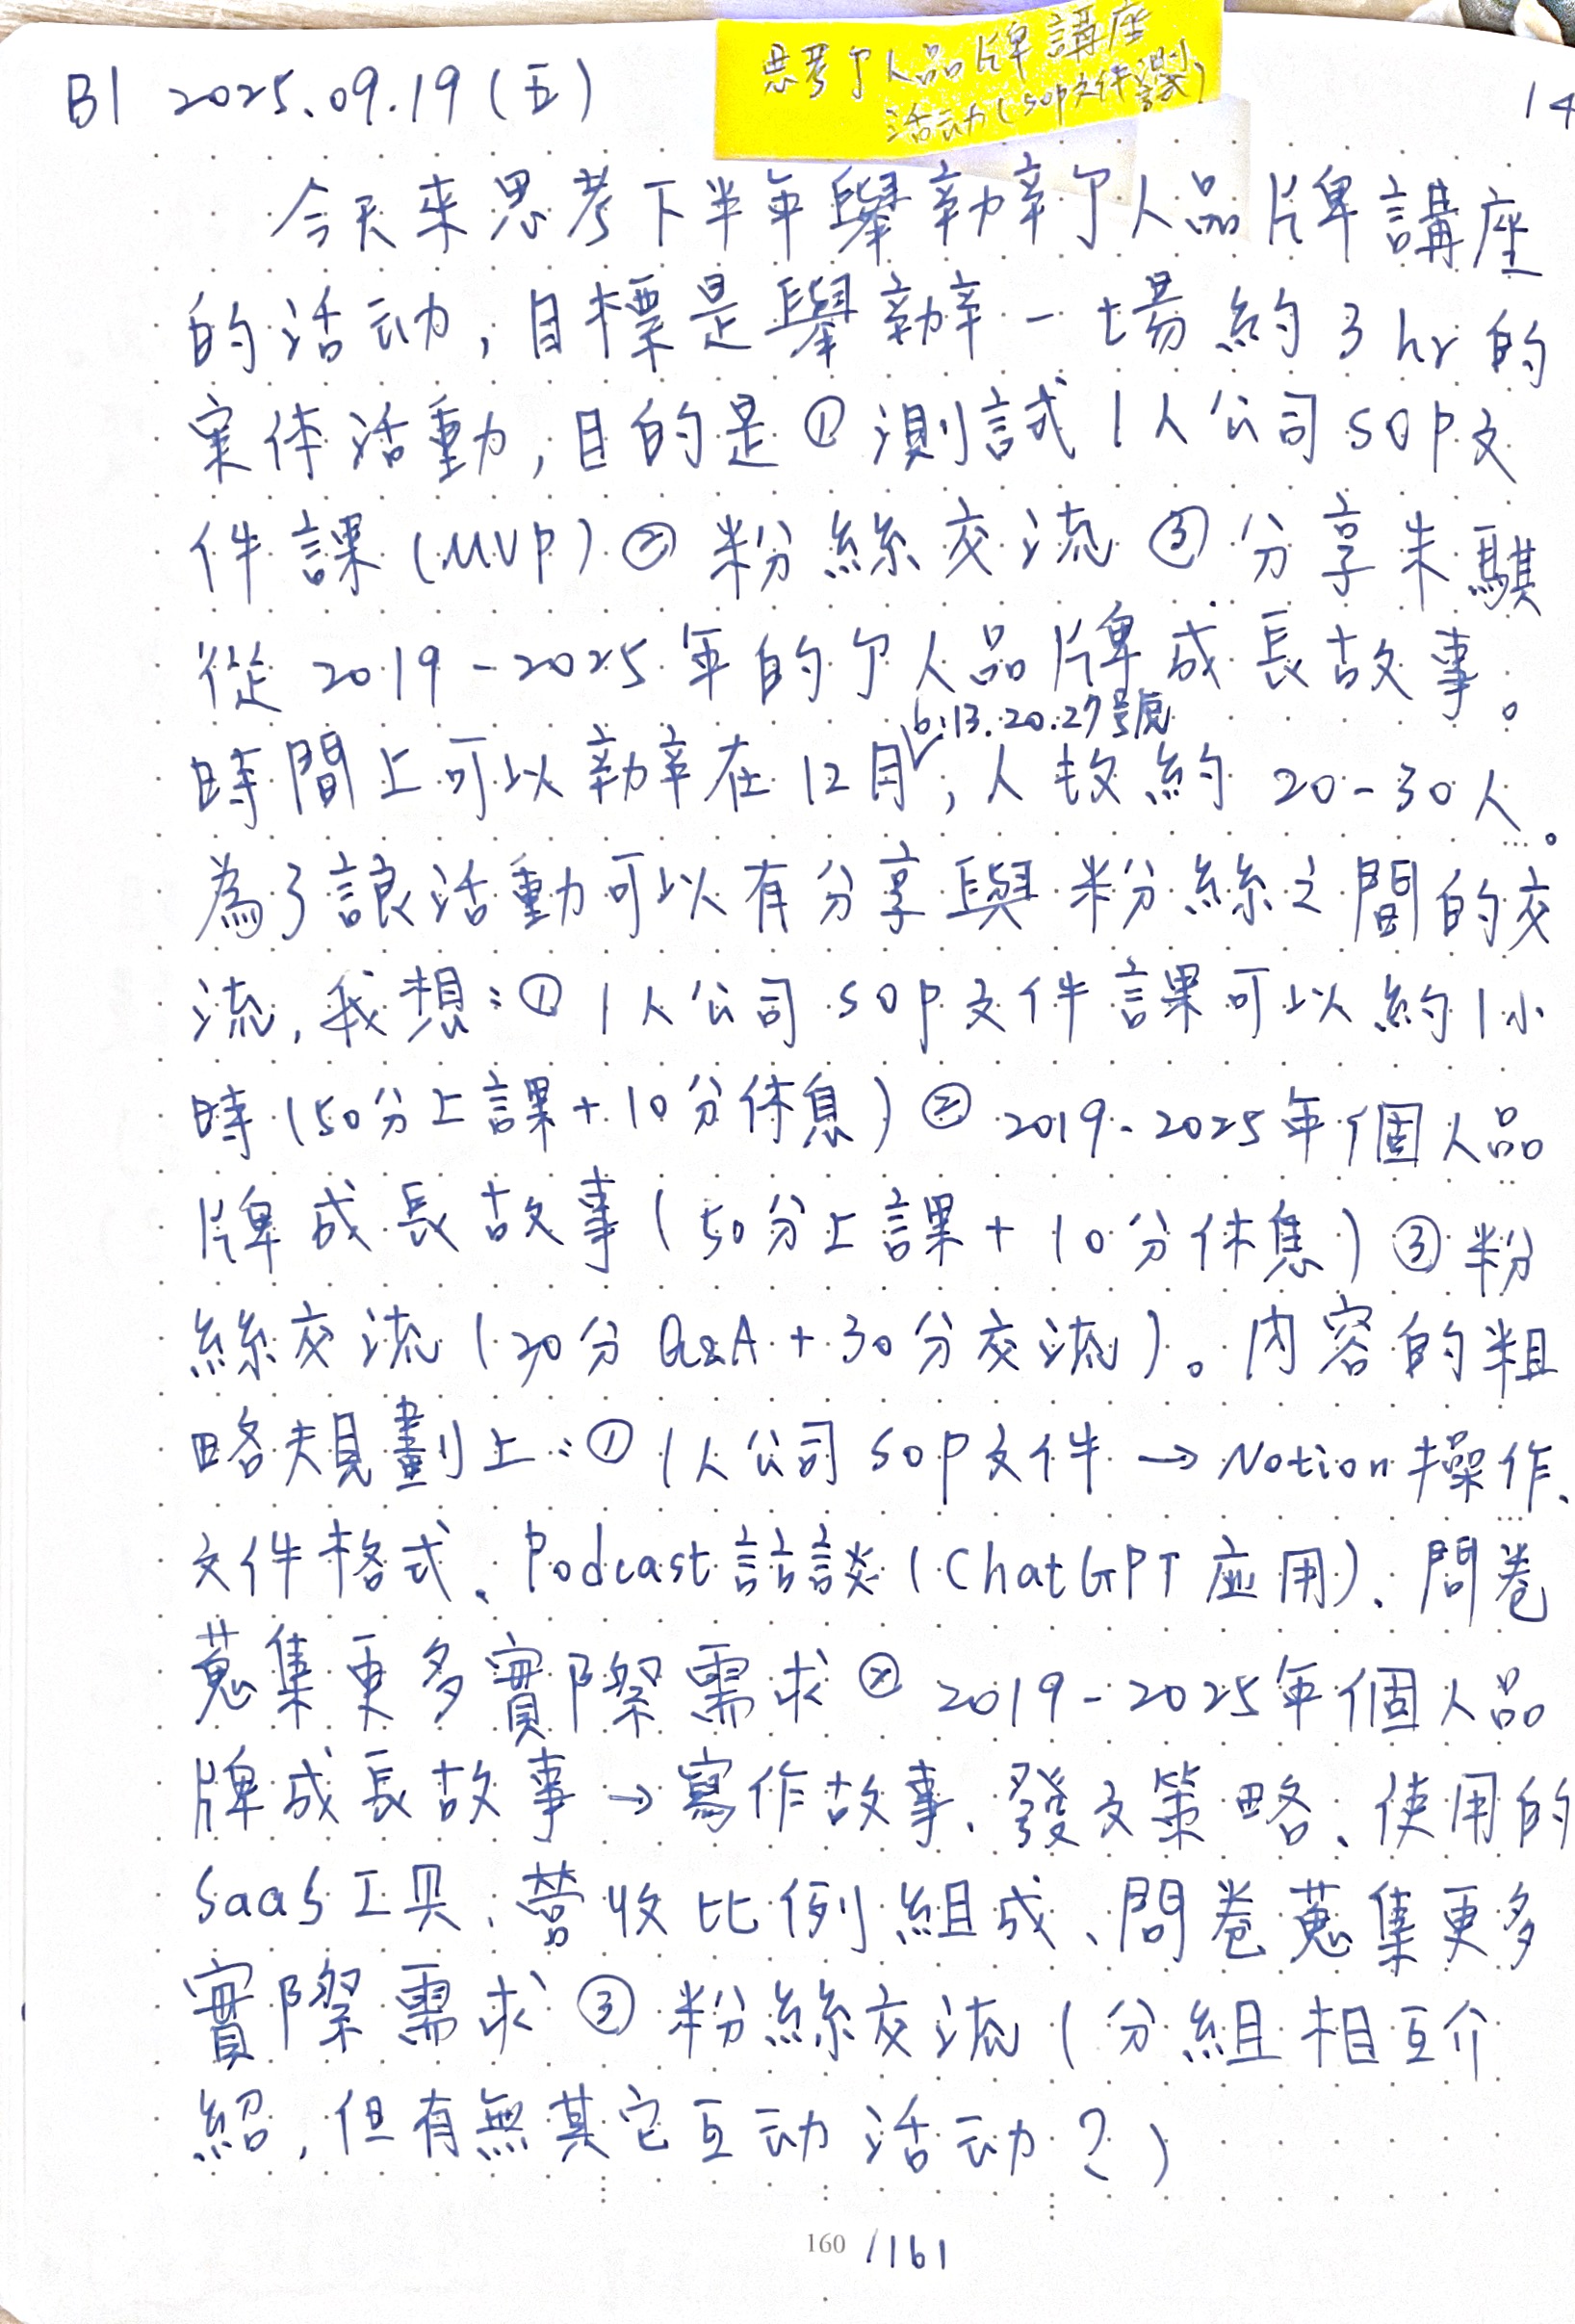 思考个人品牌講座
活动(SOP文件課)
B1 2025.09.19(五)
14
今天來思考下半年舉辦个人品牌講座
的活动,目標是舉辦一場約3hr的
実体活動,目的是①測試1人公司SOP文
件課(MVP)②粉絲交流③分享朱騏
從2019-2025年的个人品牌成長故事。
6.13.20.27號
時間上可以辦在12月,人数約20-30人。
為了讓活動可以有分享與粉絲之間的交
流,我想:①1人公司SOP文件課可以約1小
時(50分上課+10分休息)②2019-2025年個人品
牌成長故事(50分上課+10分休息)③粉
絲交流(30分Q&A+30分交流)。內容的粗
略規劃上:①1人公司SOP文件→Notion操作、
文件格式、Podcast訪談(ChatGPT应用)、問卷
蒐集更多實際需求②2019-2025年個人品
牌成長故事→寫作故事、發文策略、使用的
SaaS工具、營收比例組成、問卷蒐集更多
實際需求③粉絲交流(分組相互介
紹,但有無其它互动活动?)
160/161